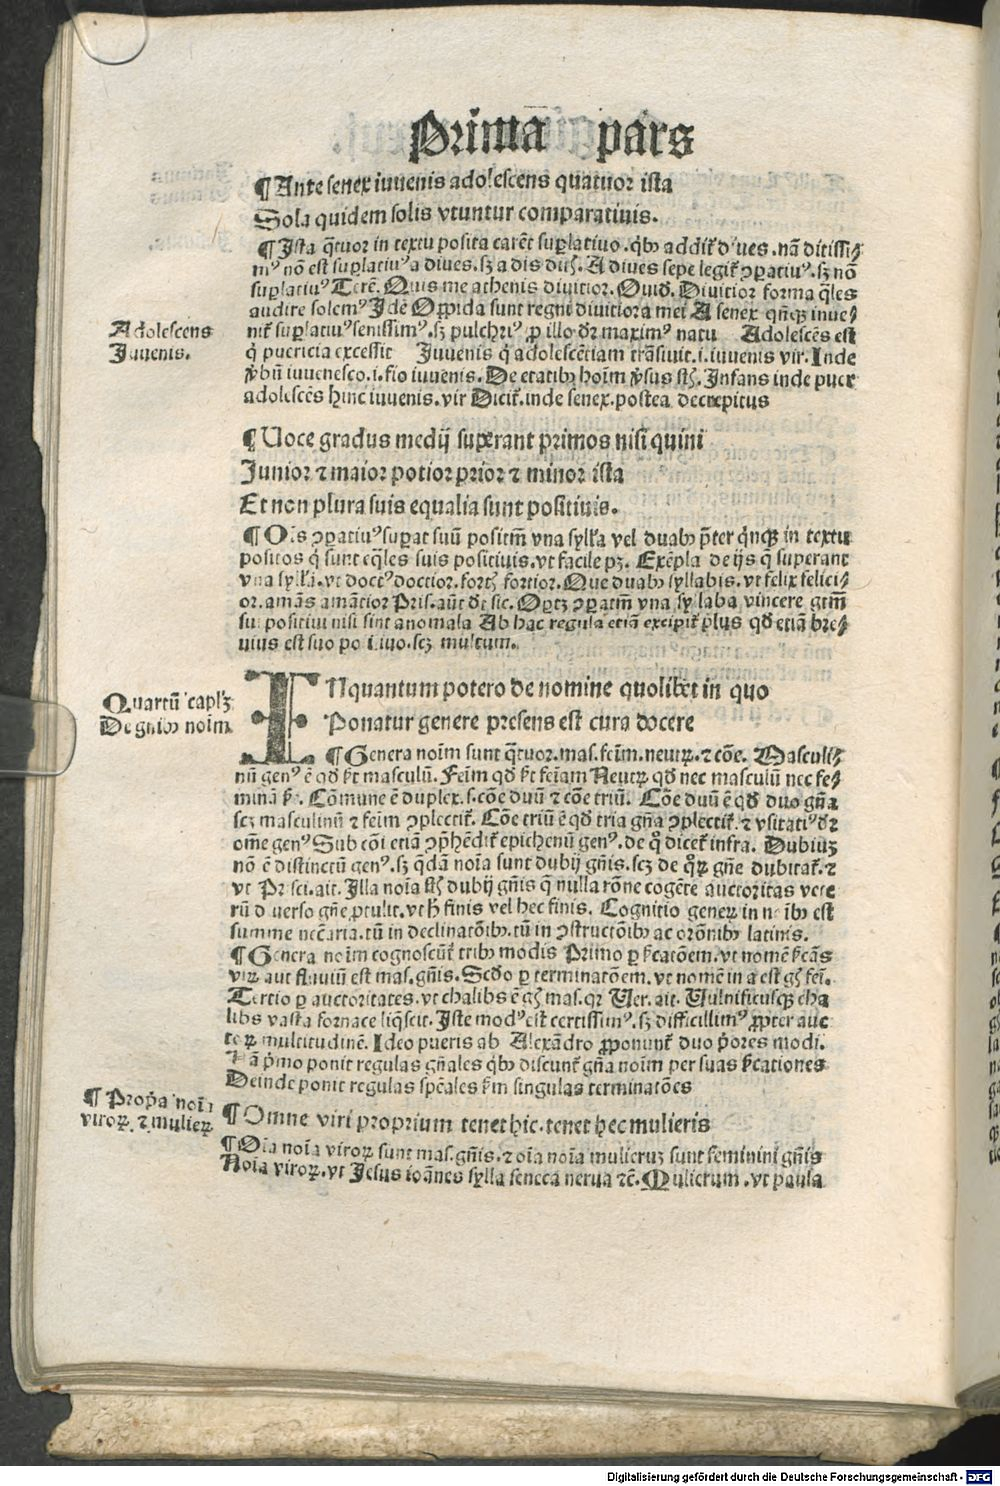 Prima pars
¶ Ante senex iuuenis adolescens quatuor ista
Sola quidem solis vtuntur comparatiuis.
¶ Ista q̄tuor in textu posita carēt suꝑlatiuo. qͥbꝫ addit᷑ dͥues. nā ditissi⸗
mꝰ nō est suꝑlatiuꝰ a diues. sꝫ a dis ditꝭ. A diues sepe legit᷑ ↄꝑatiuꝰ. sꝫ nō
suꝑlatiuꝰ Terē. Quis me athenis diuitior. Ouid̄. Diuitior forma q̄les
audire solemꝰ Idē Oppida sunt regni diuitiora mei A senex qn̄qꝫ inue⸗
nit᷑ suꝑlatiuꝰ senissimꝰ. sꝫ pulchriꝰ ꝓ illo dr̄ maximꝰ natu Adolescēs est
Adolescens
Iuuenis.
qͥ puericia excessit Iuuenis qͥ adolescētiam trāsiuit. i. iuuenis vir. Inde
v̓bū iuuenesco. i. fio iuuenis. De etatibꝫ hoīm v̓sus stꝭ. Infans inde puer
adolescēs hinc iuuenis. vir Dicit᷑. inde senex. postea decrepitus
¶ Uoce gradus medij superant primos nisi quini
Junior ⁊ maior potior prior ⁊ minor ista
Et non plura suis equalia sunt positiuis.
¶ Oīs ↄꝑatiuꝰ suꝑat suū positiū vna sylľa vel duabꝫ p̄ter qͥnqꝫ in textu
positos qͥ sunt eq̄les suis positiuis. vt facile pꝫ. Exēpla de ijs q̄ superant
vna sylľa. vt doctꝰ doctior. fortꝭ fortior. Que duabꝫ syllabis. vt felix felici⸗
or. amās amātior Pris. aūt dt̄ sic. Oꝑtꝫ ↄꝑatiū vna syllaba vincere gtm̄
sui positiui nisi sint anomala Ab hac regula etiā excipit᷑ plus qd̄ etiā bre⸗
uius est suo positiuo. scꝫ multum.
Quartū capľꝫ
De gn̄ibꝫ noīm.
INquantum potero de nomine quolibet in quo
Ponatur genere presens est cura docere
¶ Genera noīm sunt q̄tuor. mas. feīm. neutꝝ. ⁊ cōe. Masculi⸗
nū genꝰ ē qd̄ fꝛt masculū. Feīm qd̄ fꝛt feīam Neutꝝ qd̄ nec masculū nec fe⸗
minā fꝛ. Cōmune ē duplex. s. cōe duū ⁊ cōe triū. Cōe duū ē qd̄ duo gn̄a
scꝫ masculinū ⁊ feīm ↄplectit᷑. Cōe triū ē qd̄ tria gn̄a ↄplectit᷑. ⁊ vsitatiꝰ dr̄
om̄e genꝰ Sub cōi etiā ↄp̄hēdit᷑ epichenū genꝰ. de qͦ dicet᷑ infra. Dubiuꝫ
nō ē distinctū genꝰ. sꝫ q̄dā noīa sunt dubij gn̄is. scꝫ de qͦꝝ gn̄e dubitat᷑. ⁊
vt Prisci. ait. Illa noīa stꝭ dubij gn̄is q̄ nulla rōne cogēte auctoritas vete
rū diuerso gn̄e ꝓtulit. vt hͥ finis vel hec finis. Cognitio generꝝ in noībꝫ est
summe necēaria. tū in declinatōibꝫ. tū in ↄstructōibꝫ ac orōnibꝫ latinis.
¶ Genera noīm cognoscūt᷑ tribꝫ modis Primo ꝑ fꝛcatōem. vt nomē fꝛcās
virꝝ aut fluuiū est mas. gn̄is. Scd̄o ꝑ terminatōem. vt nomē in a est gꝭ feī.
Tertio ꝑ auctoritates. vt chalibs ē gꝭ mas. qꝛ Uer. ait. Uulnificusqꝫ cha
libs vasta fornace liq̄scit. Iste modꝰ est certissimꝰ. sꝫ difficillimꝰ ꝓpter auc
toꝝ multitudinē. Ideo pueris ab Alexādro ꝓponunt᷑ duo pͥores modi.
Nā pͥmo ponit regulas gn̄ales qͥbꝫ discunt᷑ gn̄a noīm per suas fꝛcationes
Deinde ponit regulas spēales fꝛm singulas terminatōes
¶ Propͥa noīa
viroꝝ. ⁊ mulieꝝ
¶ Omne viri proprium tenet hic. tenet hec mulieris
¶ Oīa noīa viroꝝ sunt mas. gn̄is. ⁊ oīa noīa mulieruꝫ sunt feminini gn̄is
Noīa viroꝝ. vt Jesus ioānes sylla seneca nerua ⁊c̄. Mulierum. vt paula
Digitalisierung gefördert durch die Deutsche Forschungsgemeinschaft - DFG